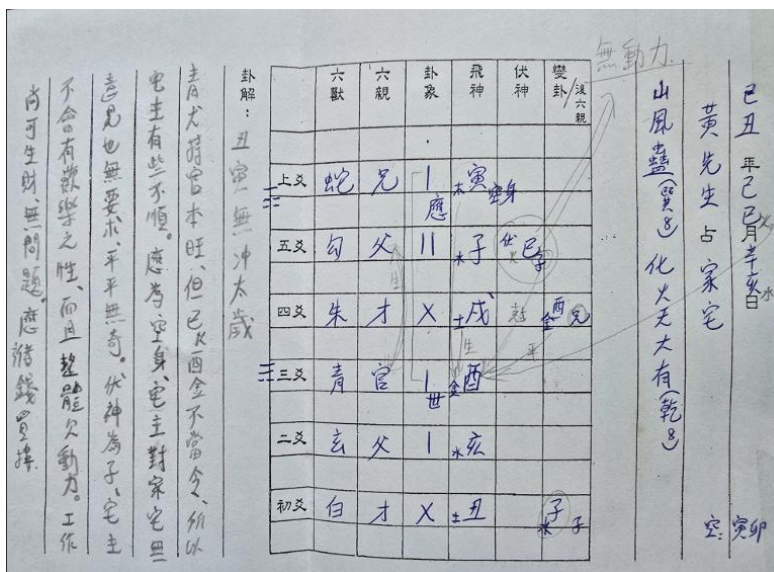 己丑 年己巳月辛亥日
火
水
黃先生占家宅
空:寅卯
山風蠱(巽8)化火天大有(乾8)
無動力
六獸 六親 卦象 飛神 伏神 變卦/後六親
上爻 蛇 兄 〡 應 木寅 空身
五爻 勾 父 〢 水子 伏巳火 子
四爻 朱 才 X 土戌 金酉
三爻 青 官 〡 世 金酉
二爻 玄 父 〡 水亥
初爻 白 才 X 土丑 子水 子
生
生
平
卦解:丑寅無沖太歲
青龙持官本旺,但巳火酉金不當令,所以
宅主有些不順。應為空身,宅主對家宅無
意見也無要求,平平無奇。伏神為子,宅主
不會有歡樂之性,而且整體欠動力。工作
尚可生財,無問題。應